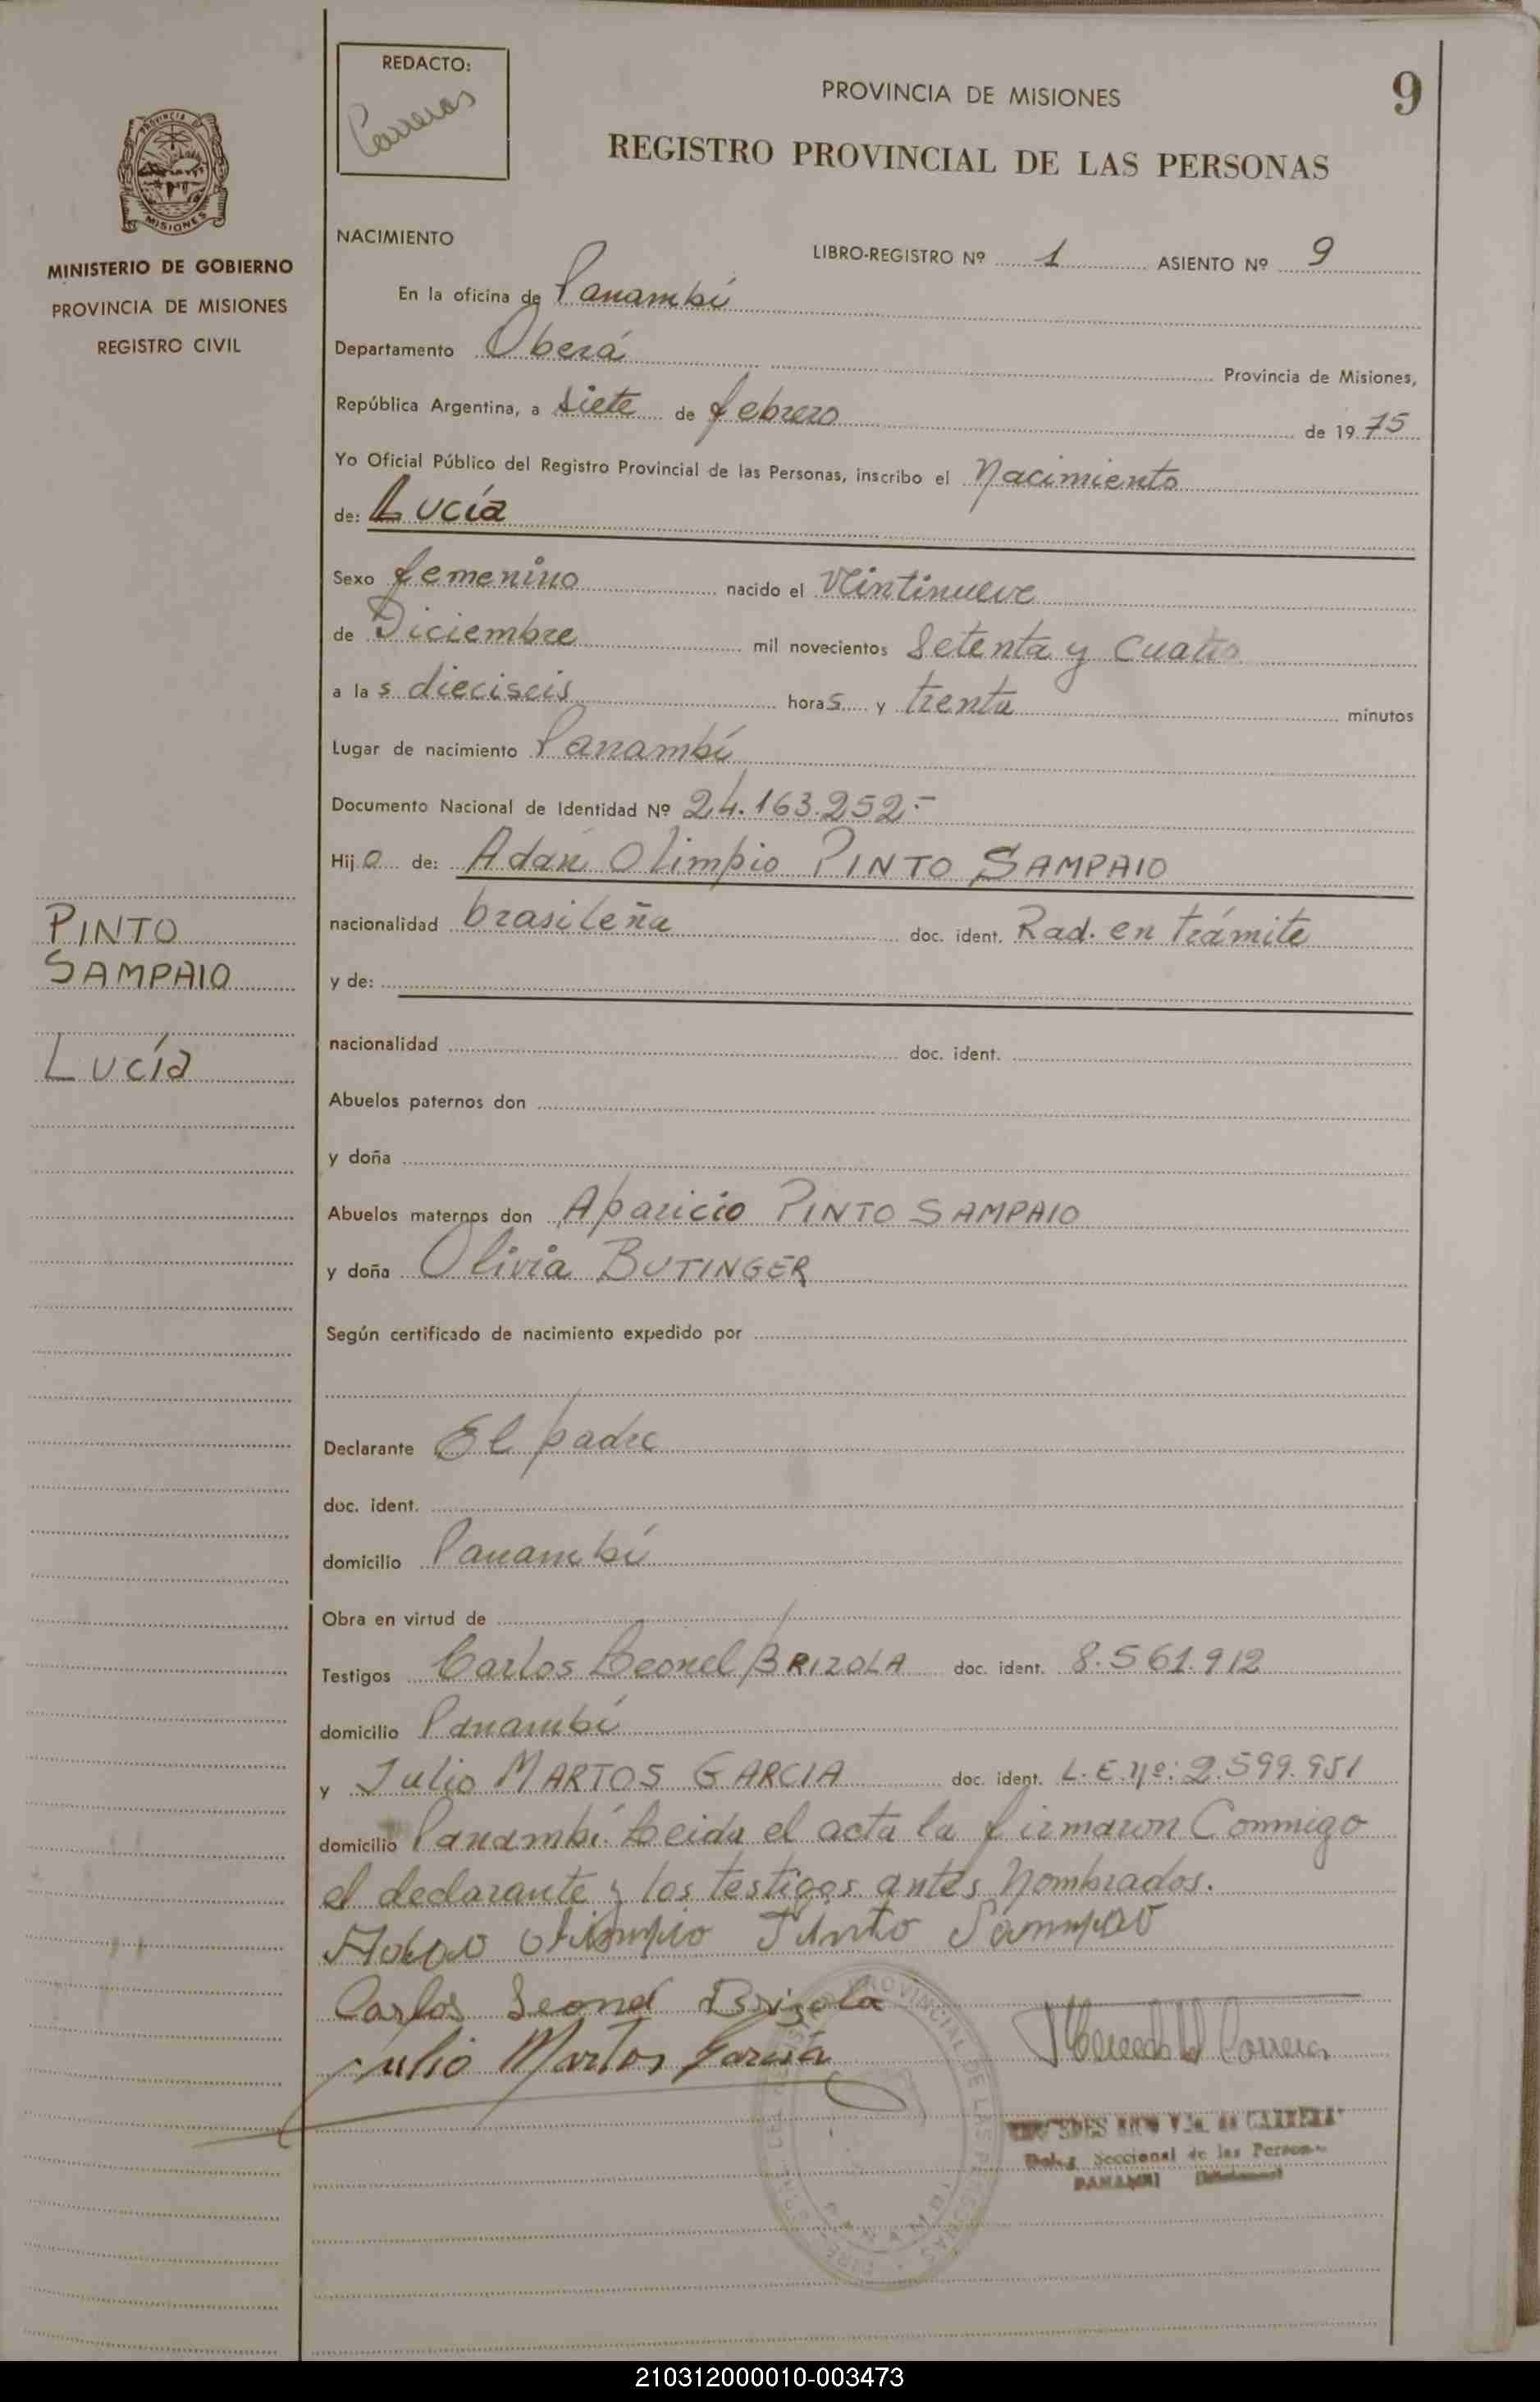 REDACTO:
Carreras
PROVINCIA DE MISIONES
9
REGISTRO PROVINCIAL DE LAS PERSONAS
MISIONES
MINISTERIO DE GOBIERNO
PROVINCIA DE MISIONES
REGISTRO CIVIL
NACIMIENTO
LIBRO-REGISTRO Nº 1 ASIENTO Nº 9
En la oficina de Panambí
Departamento Oberá Provincia de Misiones,
República Argentina, a siete de febrero de 1975
Yo Oficial Público del Registro Provincial de las Personas, inscribo el Nacimiento
de: Lucía
Sexo femenino nacido el Veintinueve
de Diciembre mil novecientos Setenta y Cuatro
a las dieciseis horas y treinta minutos
Lugar de nacimiento Panambí
Documento Nacional de Identidad Nº 24.163.252.-
Hija de: Adán Olimpio PINTO SAMPAIO
nacionalidad brasileña doc. ident. Rad. en trámite
y de:
nacionalidad doc. ident.
Abuelos paternos don
y doña
Abuelos maternos don Aparicio PINTO SAMPAIO
y doña Olivia BUTINGER
Según certificado de nacimiento expedido por
Declarante El padre
doc. ident.
domicilio Panambí
Obra en virtud de
Testigos Carlos Leonel BRIZOLA doc. ident. 8.561.912
domicilio Panambí
y Julio MARTOS GARCIA doc. ident. L.E.Nº: 2.599.951
domicilio Panambí. Leida el acta la firmaron Conmigo
el declarante y los testigos antes Nombrados.
PINTO
SAMPAIO
Lucía
Olimpio Pinto Sampaio
Carlos Leonel Brizola
Julio Martos Garcia
PROVINCIAL DE LAS PERSONAS
PANAMBI
Seccional de las Person
PANAMBI
210312000010-003473